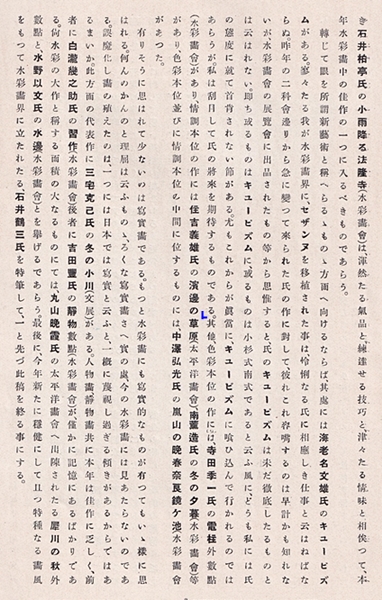 き石井柏亭氏の小雨降る法隆寺(水彩畫會)は、渾然たる氣品と、練達せる技巧と、津々たる情味と相俟つて、本
年水彩畫中の佳作の一つに入るべきものであらう。
轉じて眼を所謂新藝術と稱へらるゝものゝ方面へ向けるならば其處には海老名文雄氏のキユービズ
ムがある。寥々たる我が水彩畫界に、セザンヌを移植された事は怜悧なる氏に相應しき仕事と云はねばな
らぬ。昨年の二科會邊りから急に變つて來られた氏の作に對して彼れこれ容喙するのは早計かも知れな
いが、水彩畫會の展覽會に出品されたもの等から思惟すると氏のキユービズムは未だ徹底したるもの と
は云はれない。即ち或るものはキユービズムに或るものは小杉式南式であると云ふ風に、どうも私には氏
の態度に就て首肯されない節がある。尤もこれからが眞當にキユービズムに喰ひ込んで行かれるのでは
あらうが、私は刮目して氏の將來を期待するものである。其他色彩本位の作には、寺田季一氏の電柱外數點
(水彩畫會)があり、情調本位の作には住吉義雄氏の濱邊の草原(太平洋畫會)、南薫造氏の冬の夕暮(水彩畫會)等
があり、色彩本位並びに情調本位の中間に位するものには、中澤弘光氏の嵐山の晩春奈良鏡ケ池(水彩畫會)
があつた。
有りそうに思はれて少ないのは寫實畫である。もつと水彩畫にも寫實的なものが有つてもいゝ樣に思
はれる。何んのかんのと理屈は云ふものゝ、ろくな寫實畫さへ實の處、今の水彩畫にはあたらないのであ
る。誤魔化し畫の殖えたのは、一つには日本では寫實と云ふと一概に蔑視し過ぎる傾きがあるからではあ
るまいか。此方面の代表作に三宅克己氏の冬の小川(文展)がある。人物畫靜物畫共に本年は佳作に乏しく、前
者に白瀧幾之助氏の習作(水彩畫會)後者に吉田豐氏の靜物數點(水彩畫會)が、僅かに記憶にあるばかりであ
る。尙水彩の大作と稱する面積の大なるものにては、丸山晩霞氏の太平洋畫會へ出陳された犀川の秋外
數點と、水野以文氏の水邊(水彩畫會)とを擧げるであらう。最後に今年新たに穩健にして且つ特種なる畫風
をもつて水彩畫界に立たれたる、石井鶴三氏を特筆して、一と先づ此稿を終る事にする。